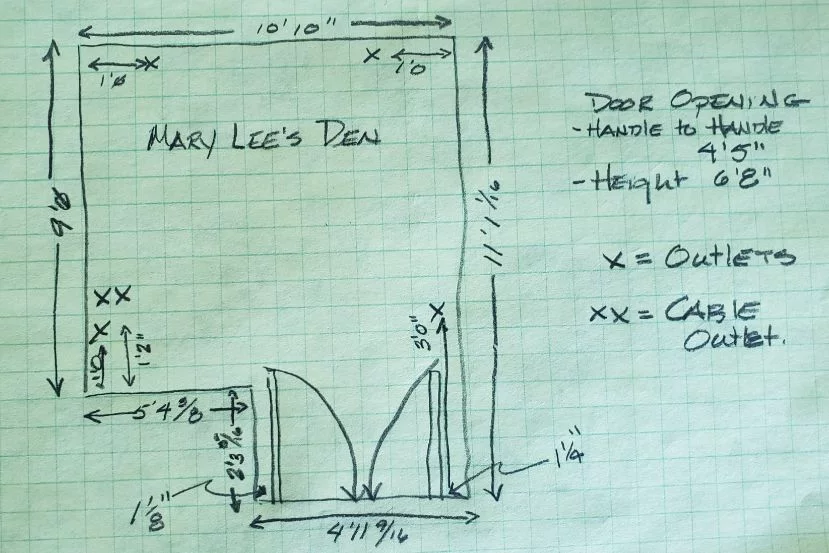 10'10"
1'0
X
X
1'0
MARY LEE'S DEN
DOOR OPENING
-HANDLE to HANDLE
4'5"
-Height 6'8"
X = OUTLETS
XX = CABLE
OUTLET.
11'1 1/16
XX
X
1'2"
3'0"
X
5'4 3/8
1 1/8"
1 1/4"
4'11 9/16